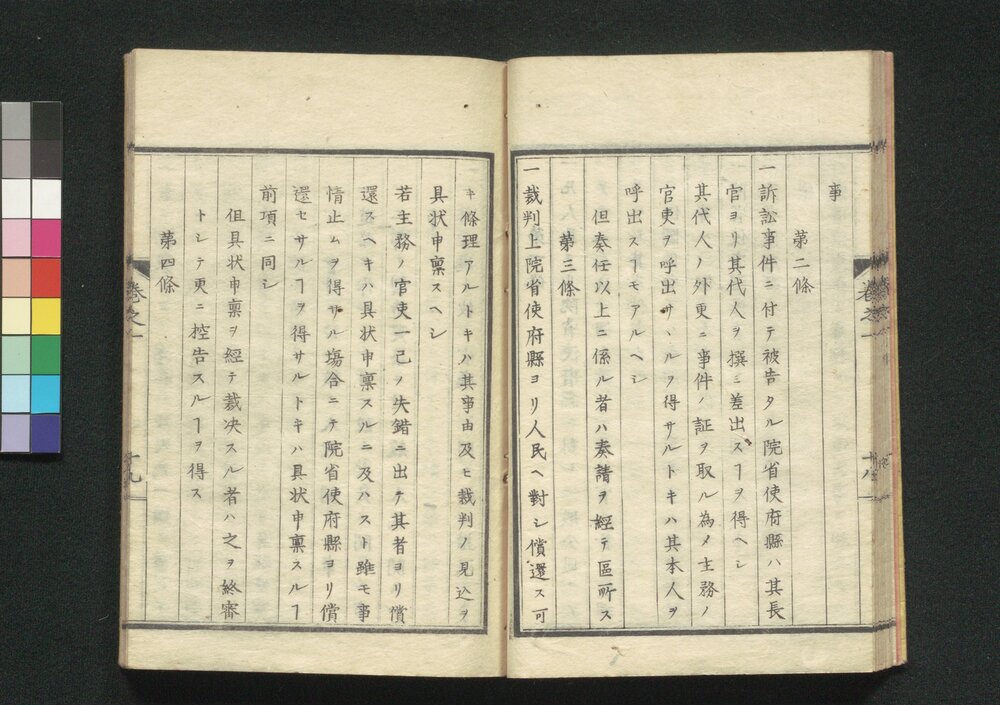 事
第二條
一訴訟事件ニ付テ被告タル院省使府縣ハ其長
官ヨリ其代人ヲ撰ミ差出スヿヲ得ヘシ
其代人ノ外更ニ事件ノ証ヲ取ル為メ主務ノ
官吏ヲ呼出サヽルヲ得サルトキハ其本人ヲ
呼出スヿモアルヘシ
但奏任以上ニ係ル者ハ奏請ヲ經テ區所ス
第三條
一裁判上院省使府縣ヨリ人民ヘ對シ償還ス可
卷之一
十八
キ條理アルトキハ其事由及ヒ裁判ノ見込ヲ
具状申稟スヘシ
若主務ノ官吏一己ノ失錯ニ出テ其者ヨリ償
還スヘキハ具状申稟スルニ及ハスト雖モ事
情止ムヲ得サル塲合ニテ院省使府縣ヨリ償
還セサルヿヲ得サルトキハ具状申稟スルヿ
前項ニ同シ
但具状申稟ヲ經テ裁决スル者ハ之ヲ終審
トシテ更ニ控告スルヿヲ得ス
第四條
卷之一
十九